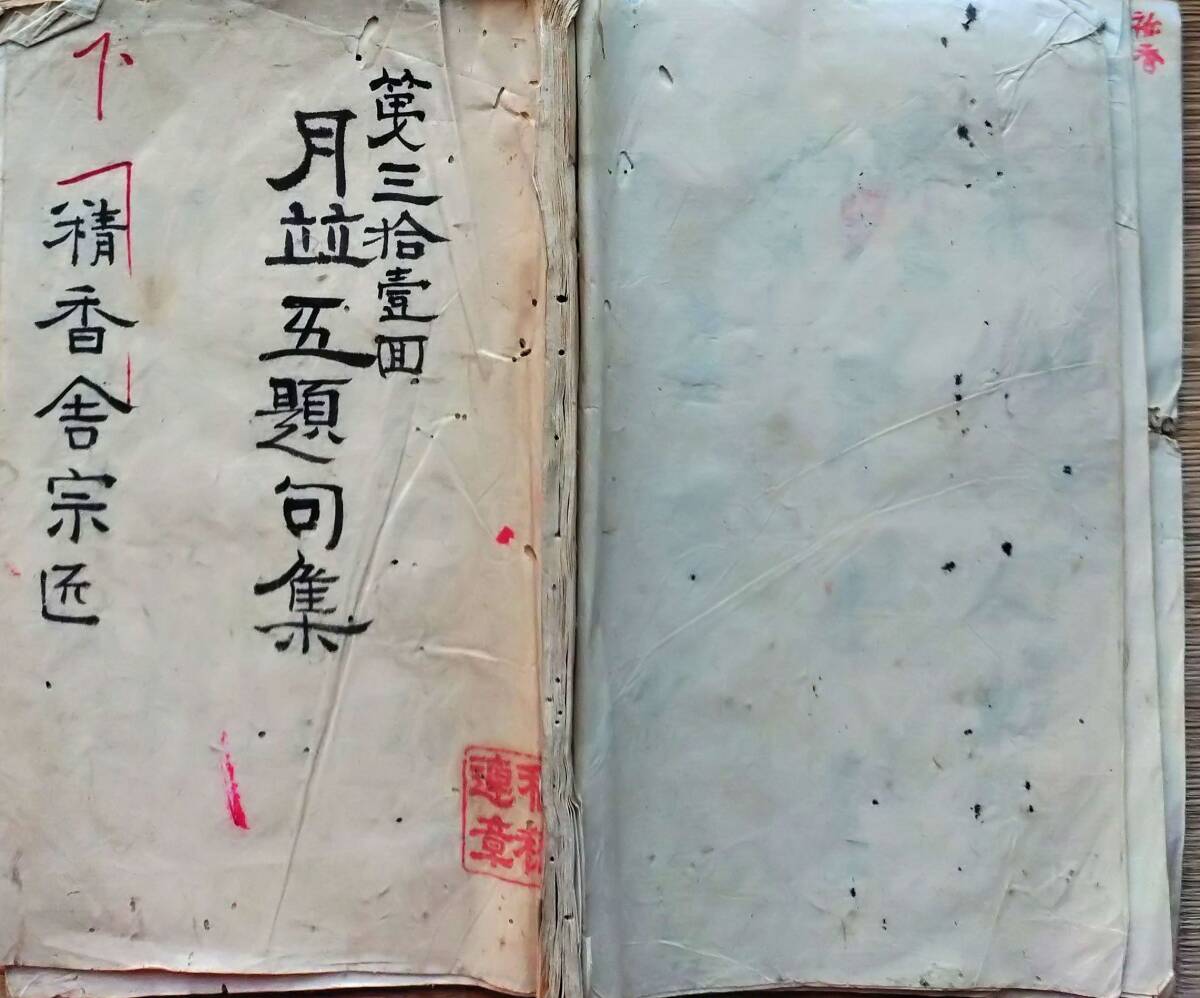 第三拾壹回
月並五題句集
下
精香舎宗匠
連章